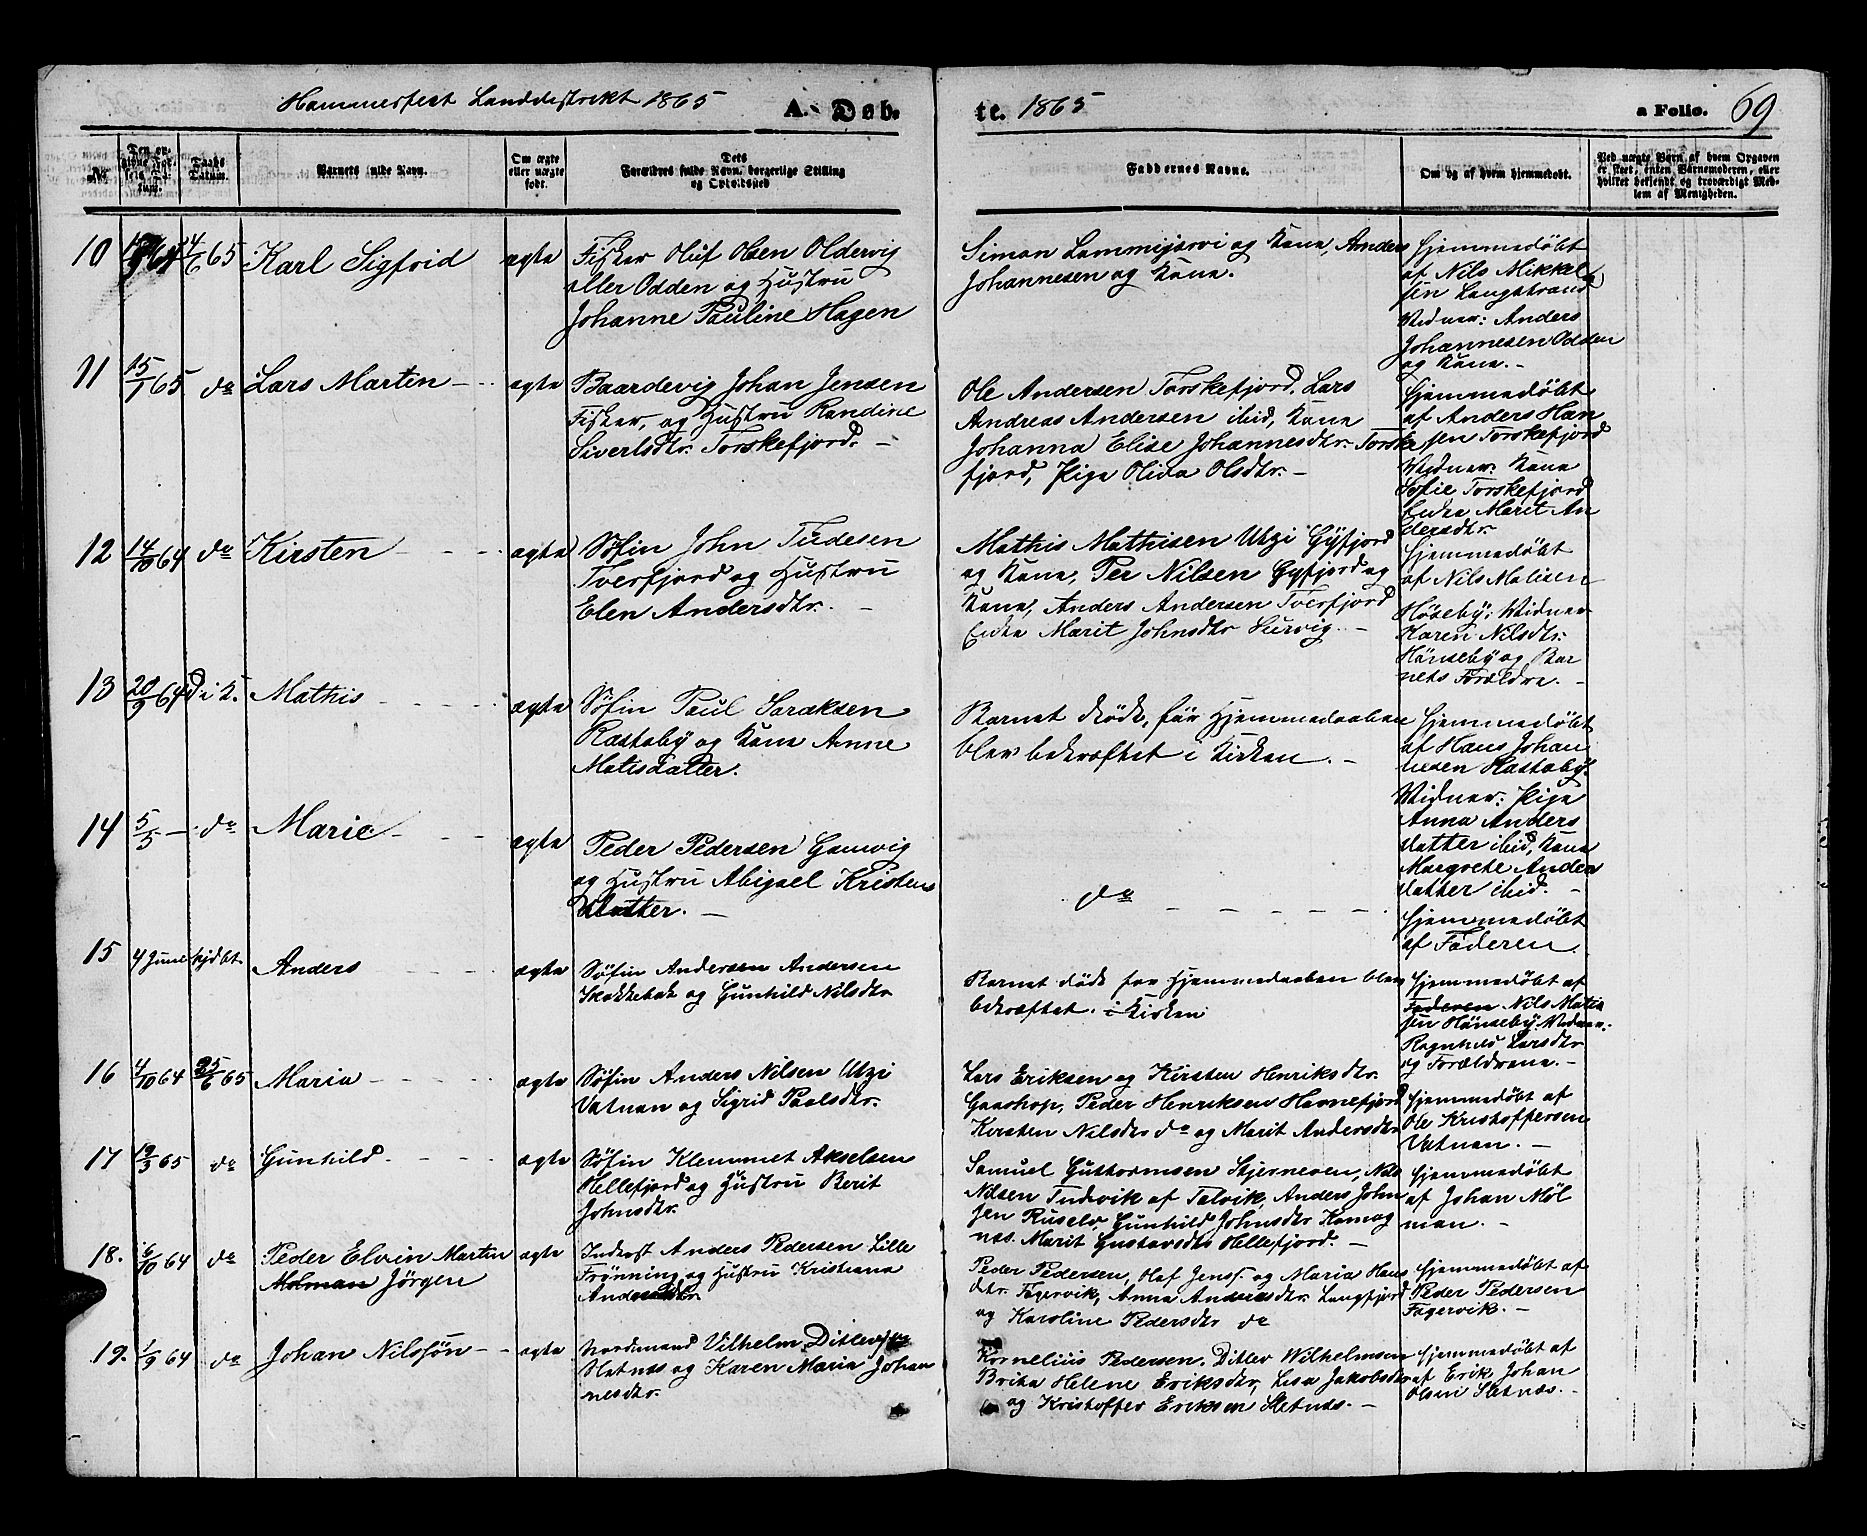 Hammerfest Landdistrikt 1865 A. Døb-
te. 1865 a Folio. 69
No. Den angivne Fødsels Datum. Daabs Datum. Barnets fulde Navn. Om ægte eller uægte født. Dets Forældres fulde Navn, borgerlige Stilling og Opholdssted
Faddernes Navne. Om og af hvem hjemmedøbt. Ved uægte Børn af hvem Opgaven er skeet, enten Barnemoderen, eller hvilket bekjendt og troværdigt Medlem af Menigheden.
10 64 4/6 65 Karl Sigfrid ægte
Fisker Oluf Olsen Oldervig
eller Odden og Hustru
Johanne Pauline Hagen
Simon Lammijærvi og Kone, Anders
Johannesen og Kone.
Hjemmedøbt
af Nils Mikkel
sen Langstrand
Vidner: Anders
Johannesen Odden
og Kone. -
11 15/1 65 do Lars Marten - ægte
Baardevig Johan Jensen
Fisker, og Hustru Randine
Sivertsdtr. Torskefjord. -
Ole Andersen Torskefjord, Lars
Andreas Andersen ibid, Kone
Johanna Elise Johannesdtr. Torske
fjord, Pige Oliva Olsdtr. -
Hjemmedøbt
af Anders Han
sen Torskefjord
Vidner: Kone
Sofie Torskefjord
Enke Marit An
dersdtr.
12 14/10 64 do Kirsten - ægte
Søfin John Tudesen
Tverfjord og Hustru
Elen Andersdtr. -
Mathis Mathisen Utzi Gyfjord
og Kone, Per Nilsen Gyfjord og
Kone, Anders Andersen Tverfjord
Enke Marit Johnsdtr Survig. -
Hjemmedøbt
af Nils Matisen
Hønseby; Vidner
Karen Nilsdtr.
Hønseby og Bar
nets Forældre. -
13 20/9 64 d i K. Mathis - ægte
Søfin Paul Saraksen
Rastaby og Kone Anne
Matisdatter.
Barnet døde, før Hjemmedaaben
blev bekræftet i Kirken. -
Hjemmedøbt
af Hans Johan
nesen Rastaby.
Vidner: Pige
Anna Anders
datter ibid, Kone
Margrete Anders
datter ibid. -
14 5/5 - do Marie - ægte
Peder Pedersen Gamvig
og Hustru Abigael Kristens
datter. -
do
Hjemmedøbt
af Faderen.
15 4 Juni hjdbt Anders ægte
Søfin Andersen Andersen
Skakkebak og Gunhild Nilsdtr
Barnet døde før Hjemmedaaben blev
bekræftet i Kirken
Hjemmedøbt af
Faderen Nils Matis
sen Hønseby. Vidner:
Ragnhild Larsdtr
og Forældrene. -
16 4/10 64 25/6 65 Maria - ægte
Søfin Anders Nilsen Utzi
Vatnan og Sigrid Paalsdtr.
Lars Eriksen og Kirsten Henriksdtr.
Gaashop, Peder Henriksen Havnefjord
Kirsten Nilsdtr do og Marit Andersdtr
Hjemmedøbt af
Ole Kristoffersen
Vatnan. -
17 12/3 65 do Gunhild - ægte
Søfin Klemmet Akselsen
Hellefjord og Hustru Berit
Johnsdtr.
Samuel Gustavmsen Stjerneven, Nils
Nilsen Tudevik af Talvik, Anders John
sen Ruselv, Gunhild Johnsdtr Komag
næs. Marit Gustavsdtr Hellefjord. -
Hjemmedøbt
af Johan Møl
man. -
18. 6/10 64 do Peder Elvin Martin
Molman Jörgen ægte
Inderst Anders Pedersen Lille
Frønning og Hustru Kristiana
Andersdtr.
Peder Pedersen, Olaf Jenss. og Maria Hans
dtr. Fagervik, Anna Andersdtr. Langfjord
og Karoline Pedersdtr do
Hjemmedøbt af
Peder Pedersen
Fagervik. -
19. 1/9 64 do Johan Nilssön - ægte
Nordmand Vilhelm Ditlevsen
Sletnæs og Karen Maria Johan
nesdtr.
Kornelius Pedersen. Ditlev Wilhelmsen
Brita Helene Eriksdtr, Lisa Jakobsdtr
og Kristoffer Eriksen Sletnæs. -
Hjemmedøbt af
af Erik Johan
Olsen Sletnæs. -